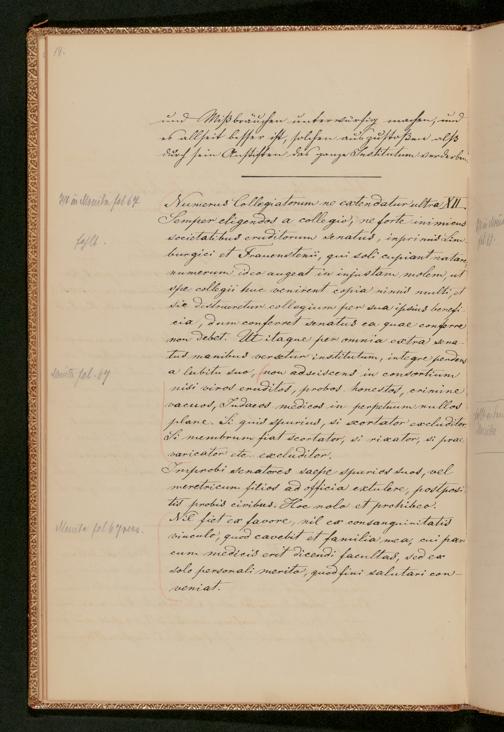 18.
und Mißbräuchen unterwürfig machen, und
es allzeit besser ist, solchen auszustoßen alß
durch sein Anstifften das ganze Institutum verderben.
Numerus Collegiatorum ne extendatur ultra XII.
Semper eligendos a collegio, ne forte inimicus
societatibus eruditorum senatus, inprimis Lim
burgici et Frauenstenii, qui soli cupiant natare,
numerum ideo augeat in injustam molem, ut
spe collegii huc venirent copia nimis multi, et
sic destrueretur collegium per sua ipsius benefi-
cia, dum conferret senatus ea quae conferre
non debet. Ut itaque per omnia extra sena-
tus manibus versetur institutum, integre pendens
a lubitu suo, non adsciscens in consortium
nisi viros eruditos, probos honestos, crimine
vacuos, Judaeos medicos in perpetuum nullos
plane. Si quis spurius, si scortator excluditor
Si membrum fiat scortator, si rixator, si prae
varicator etc excluditor.
Improbi senatores saepe spurios suos, vel
meretricum filios ad officia extulere, postposi-
tis probis civibus. Hoc nolo et prohibeo.
Nil fiet ex favore, nil ex consanguinitatis
vinculo, quod cavebit et familia mea, cui par
cum medicis erit dicendi facultas, sed ex
solo personali merito, quod fini salutari con-
veniat.
in Monita fol 67
fehlt.
fol. 67
Monita fol 67 vers.